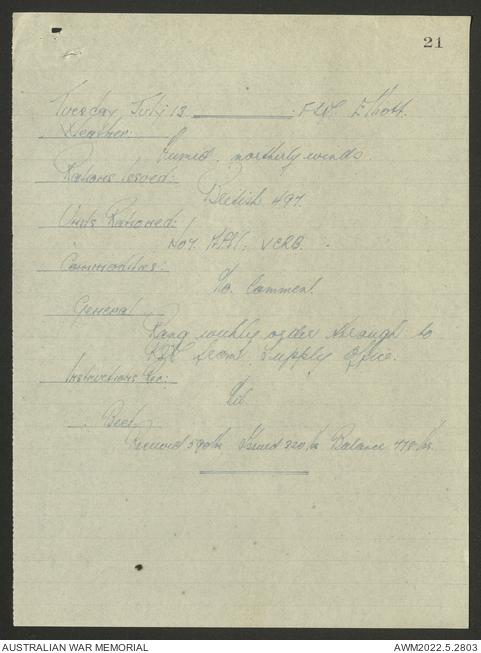 21
Tuesday July 13
Weather:
Humid, northerly winds.
Rations Issued:
British 497.
Units Rationed:
No 7.
Commodities:
No Comment.
General
Rang weekly order through to
from Supply Office.
Instructions Rec:
Nil.
Beer.
Received 590 Issued 220 Balance 478
AUSTRALIAN WAR MEMORIAL
AWM2022.5.2803